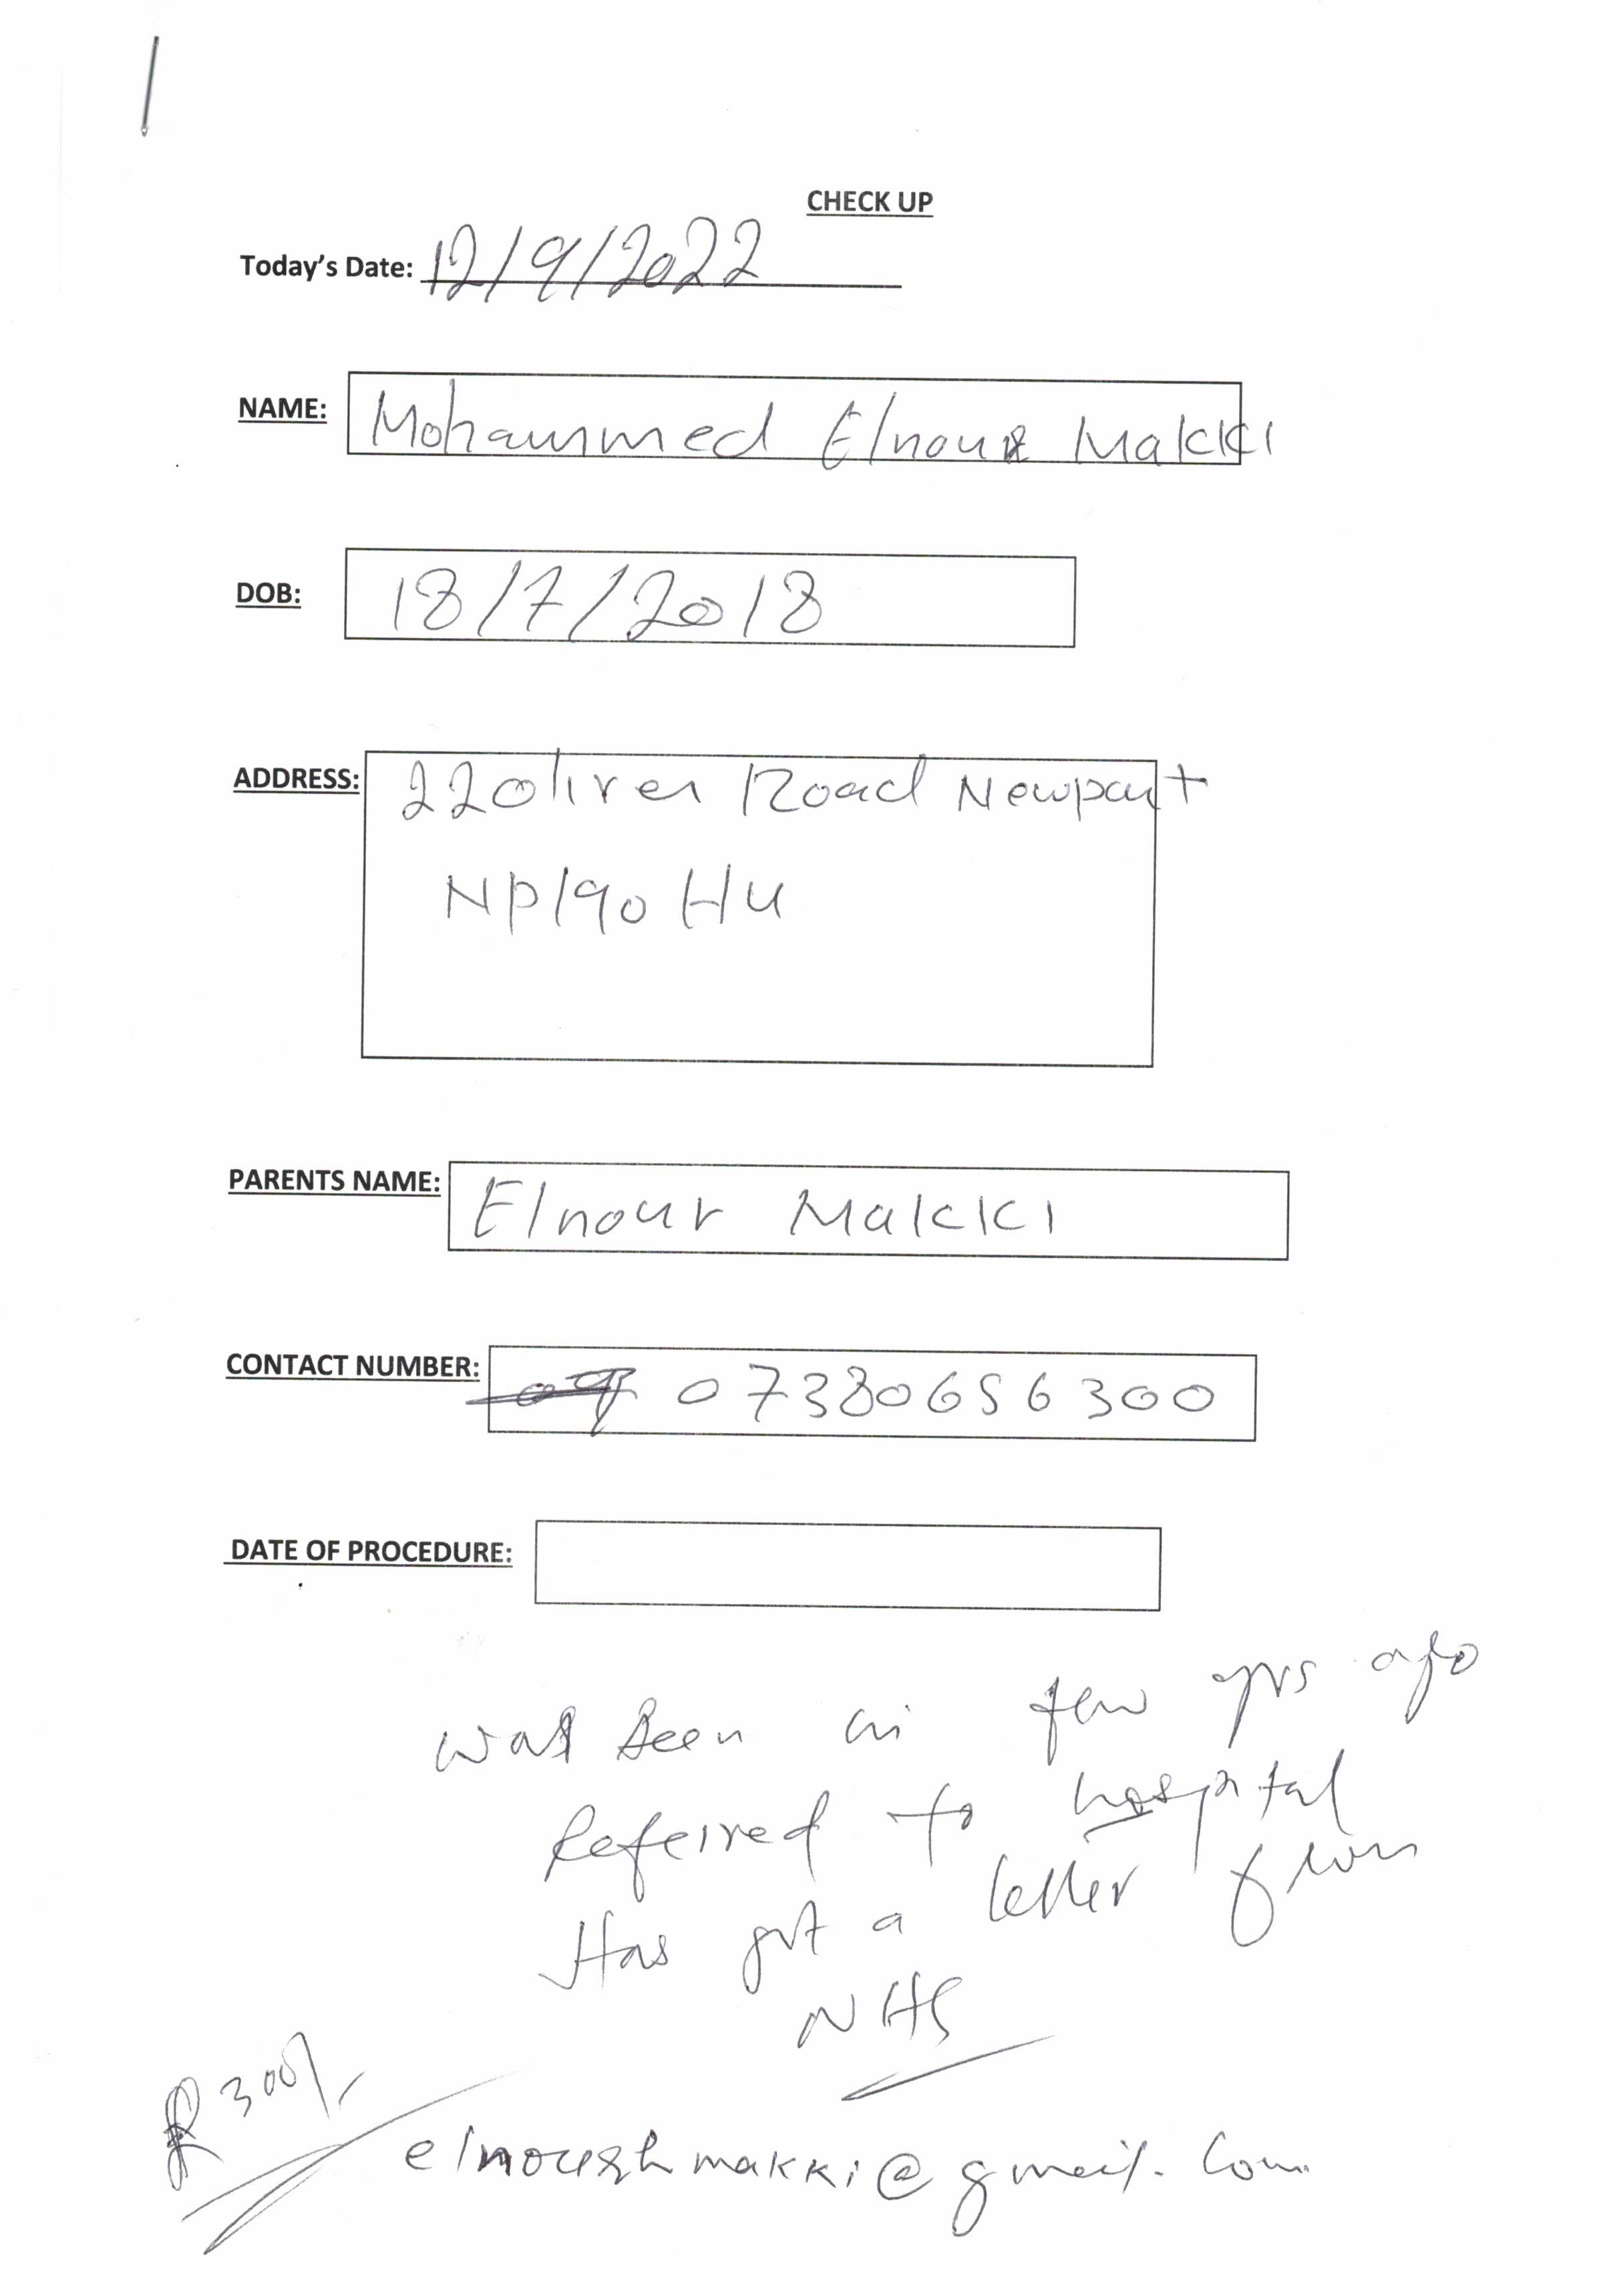 CHECK UP
Today's Date: 12/9/2022
NAME: Mohammed Elnour Makki
DOB: 18/7/2018
ADDRESS: 22 Oliver Road Newport
NP190HU
PARENTS NAME: Elnour Makki
CONTACT NUMBER: 07380656300
DATE OF PROCEDURE:
was seen in few yrs ago
Referred to hospital
Has got a letter from
NHS
£300/-
@gmail.com